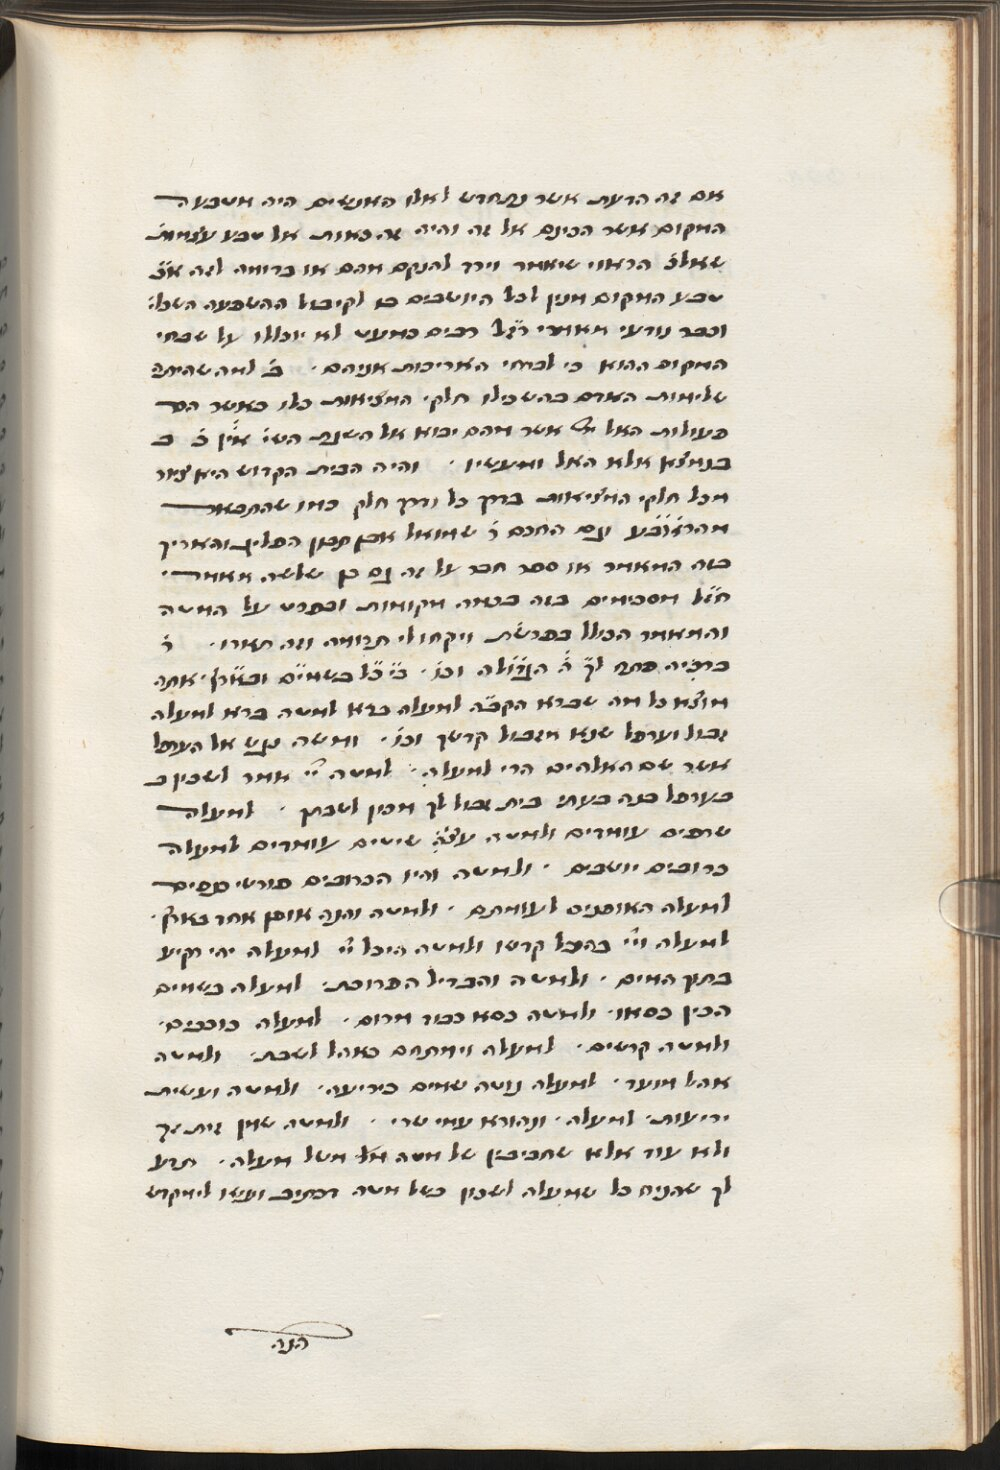 אם זה הדעת אשר נתחדש לאלו האנשים היה משפעה
המקום אשר הכינם אל זה והיה זה כאות אל טבע עצמות
שאולי הראוי שיאמר וירד להנקם מהם או בדומה לזה אצ
טבע המקום מכין לכל היושבים בו לקיבול ההשפעה השכלי
וכבר נודעי מאמרי רז״ל רבים כמעט לא יוכללו על שבחי
המקום ההוא כי לבחתי האריכות אניהם · ב למה שהיתה
שלימות האדם בהשכילו חלקי המציאות כלו כאשר הם
פעולות האל ית׳ אשר מהם יבוא אל השגת השי׳ אין כ ב
בנמצא אלא האל ומעשיו · והיה הבית הקדוש היא ציור
מכל חלקי המציאות בדרך כל ודרך חלק כמו שהתבאר
מהראב״ע וגם החכם ר׳ שמואל אבן תבון הפליג והאריך
בזה המאמר או ספר חבר על זה גם כן שלשה מאמרי
חז״ל מסכימים בזה בכמה מקומות ובפרט על המשה
והמאמר הכולל בפרשת ויקחו לי תרומה וזה תארו · ר׳
ברכיה פתח לך ה׳ הגדולה וכו׳ · כי כל בשמים ובארץ · אתה
מוצא כל מה שברא הקב״ה למעלה ברא למטה ברא למעלה
זבול וערפל שנא׳ מזבול קדשך וכו׳ · ומשה נגש אל הערפל
אשר שם האלהים הרי למעלה · למטה יי׳ אמר לשכון ב
בערפל בנה בניתי בית זבול לך מכון לשבתך · למעלה
שרפים עומדים ולמטה עצי שיטים עומדים למעלה
כרובים יושבים · ולמטה והיו הכרובים פורשי כנפים
למעלה האופנים לעומתם · ולמטה והנה אופן אחד בארץ ·
למעלה ויי׳ בהיכל קדשו ולמטה היכל יי׳ למעלה יהי רקיע
בתוך המים · ולמטה והבדילה הפרוכת · למעלה בשמים
הכין כסאו · ולמטה כסא כבוד מרום · למעלה כוכבים ·
ולמטה קרסים · למעלה וימתחם כאהל לשבת · ולמטה
אהל מועד · למעלה נוטה שמים כיריעה · ולמטה ועשית
יריעות · למעלה · ונהורא עמי׳ שרי · ולמטה שמן זית זך
ולא עוד אלא שחביבין של מטה מאל משל מעלה · תדע
לך שהניח כל שמעלה לשכון בשל מטה דכתיב ועשו לי מקדש
הנה